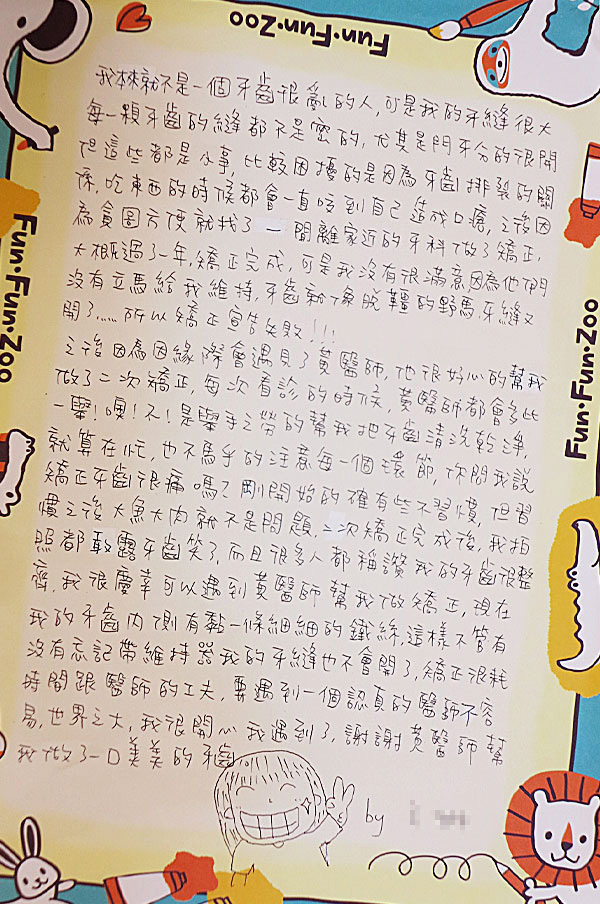 Fun·Fun·Zoo
Fun·Fun·Zoo
我本來就不是一個牙齒很亂的人,可是我的牙縫很大
每一顆牙齒的縫都不是密的,尤其是門牙分的很開
但這些都是小事,比較困擾的是因為牙齒排裂的關
係,吃東西的時候都會一直咬到自己造成口瘡,之後因
為貪圖方便就找了一間離家近的牙科做了矯正,
大概過了一年,矯正完成,可是我沒有很滿意因為他們
沒有立馬給我維持,牙齒就像脫韁的野馬,牙縫又
開了......所以矯正宣告失敗!!!
之後因為因緣際會遇見了黃醫師,他很好心的幫我
做了二次矯正,每次看診的時候,黃醫師都會多此
一舉!噢!不!是舉手之勞的幫我把牙齒清洗乾淨,
就算在忙,也不馬乎的注意每一個環節,你問我說
矯正牙齒很痛嗎?剛開始的確有些不習慣,但習
慣之後大魚大肉就不是問題,二次矯正完成後,我拍
照都敢露牙齒笑了,而且很多人都稱讚我的牙齒很整
齊,我很慶幸可以遇到黃醫師幫我做矯正,現在
我的牙齒內側有黏一條細細的鐵絲,這樣不管有
沒有忘記帶維持器我的牙縫也不會開了,矯正很耗
時間跟醫師的工夫,要遇到一個認真的醫師不容
易,世界之大,我很開心我遇到了,謝謝黃醫師幫
我做了一口美美的牙齒
by
Fun·Fun·Zoo
Fun·Fun·Zoo